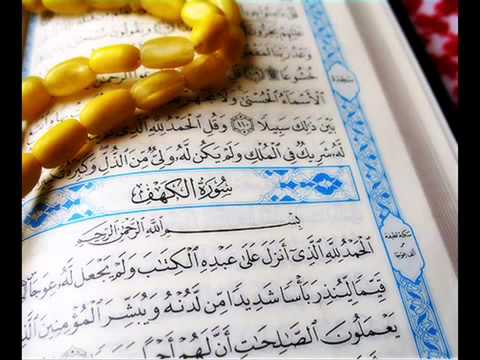 خُشُوعًا
ٱلْأَسْمَآءُ ٱلْحُسْنَىٰ وَلَا
سجدة
بَيْنَ ذَٰلِكَ سَبِيلًا ١١٠ وَقُلِ ٱلْحَمْدُ لِلَّهِ
لَّهُۥ شَرِيكٌ فِى ٱلْمُلْكِ وَلَمْ يَكُن لَّهُۥ وَلِىٌّ مِّنَ ٱلذُّلِّ وَكَبِّرْهُ
سُورَةُ الكَهْفِ
بِسْمِ ٱللَّهِ ٱلرَّحْمَٰنِ ٱلرَّحِيمِ
ٱلْحَمْدُ لِلَّهِ ٱلَّذِىٓ أَنزَلَ عَلَىٰ عَبْدِهِ ٱلْكِتَٰبَ وَلَمْ يَجْعَل لَّهُۥ عِوَجَا
قَيِّمًا لِّيُنذِرَ بَأْسًا شَدِيدًا مِّن لَّدُنْهُ وَيُبَشِّرَ ٱلْمُؤْمِنِينَ
يَعْمَلُونَ ٱلصَّٰلِحَٰتِ أَنَّ لَهُمْ